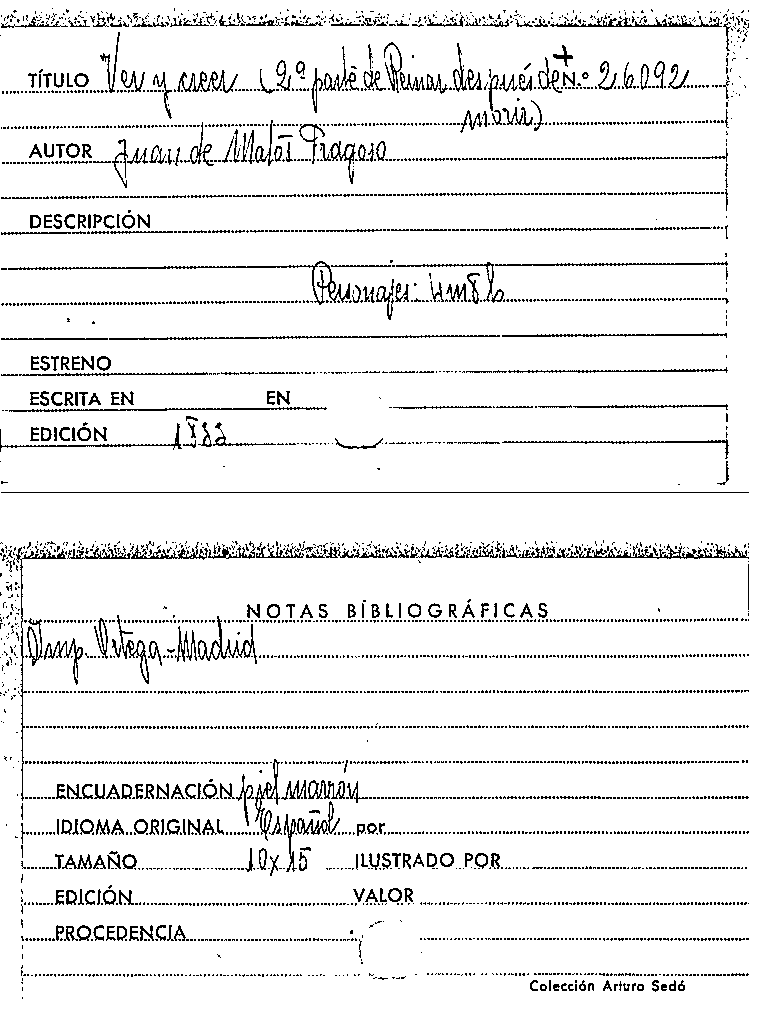 TÍTULO Ver y creer (2ª parte de Reinar después de N.º 26092
morir)
AUTOR Juan de Matos Fragoso
DESCRIPCIÓN
Personajes: 4m 8h
ESTRENO
ESCRITA EN EN
EDICIÓN
NOTAS BIBLIOGRÁFICAS
Imp. Ortega-Madrid
ENCUADERNACIÓN piel marrón
IDIOMA ORIGINAL Español por
TAMAÑO 10x15 ILUSTRADO POR
EDICIÓN VALOR
PROCEDENCIA
Colección Arturo Sedó